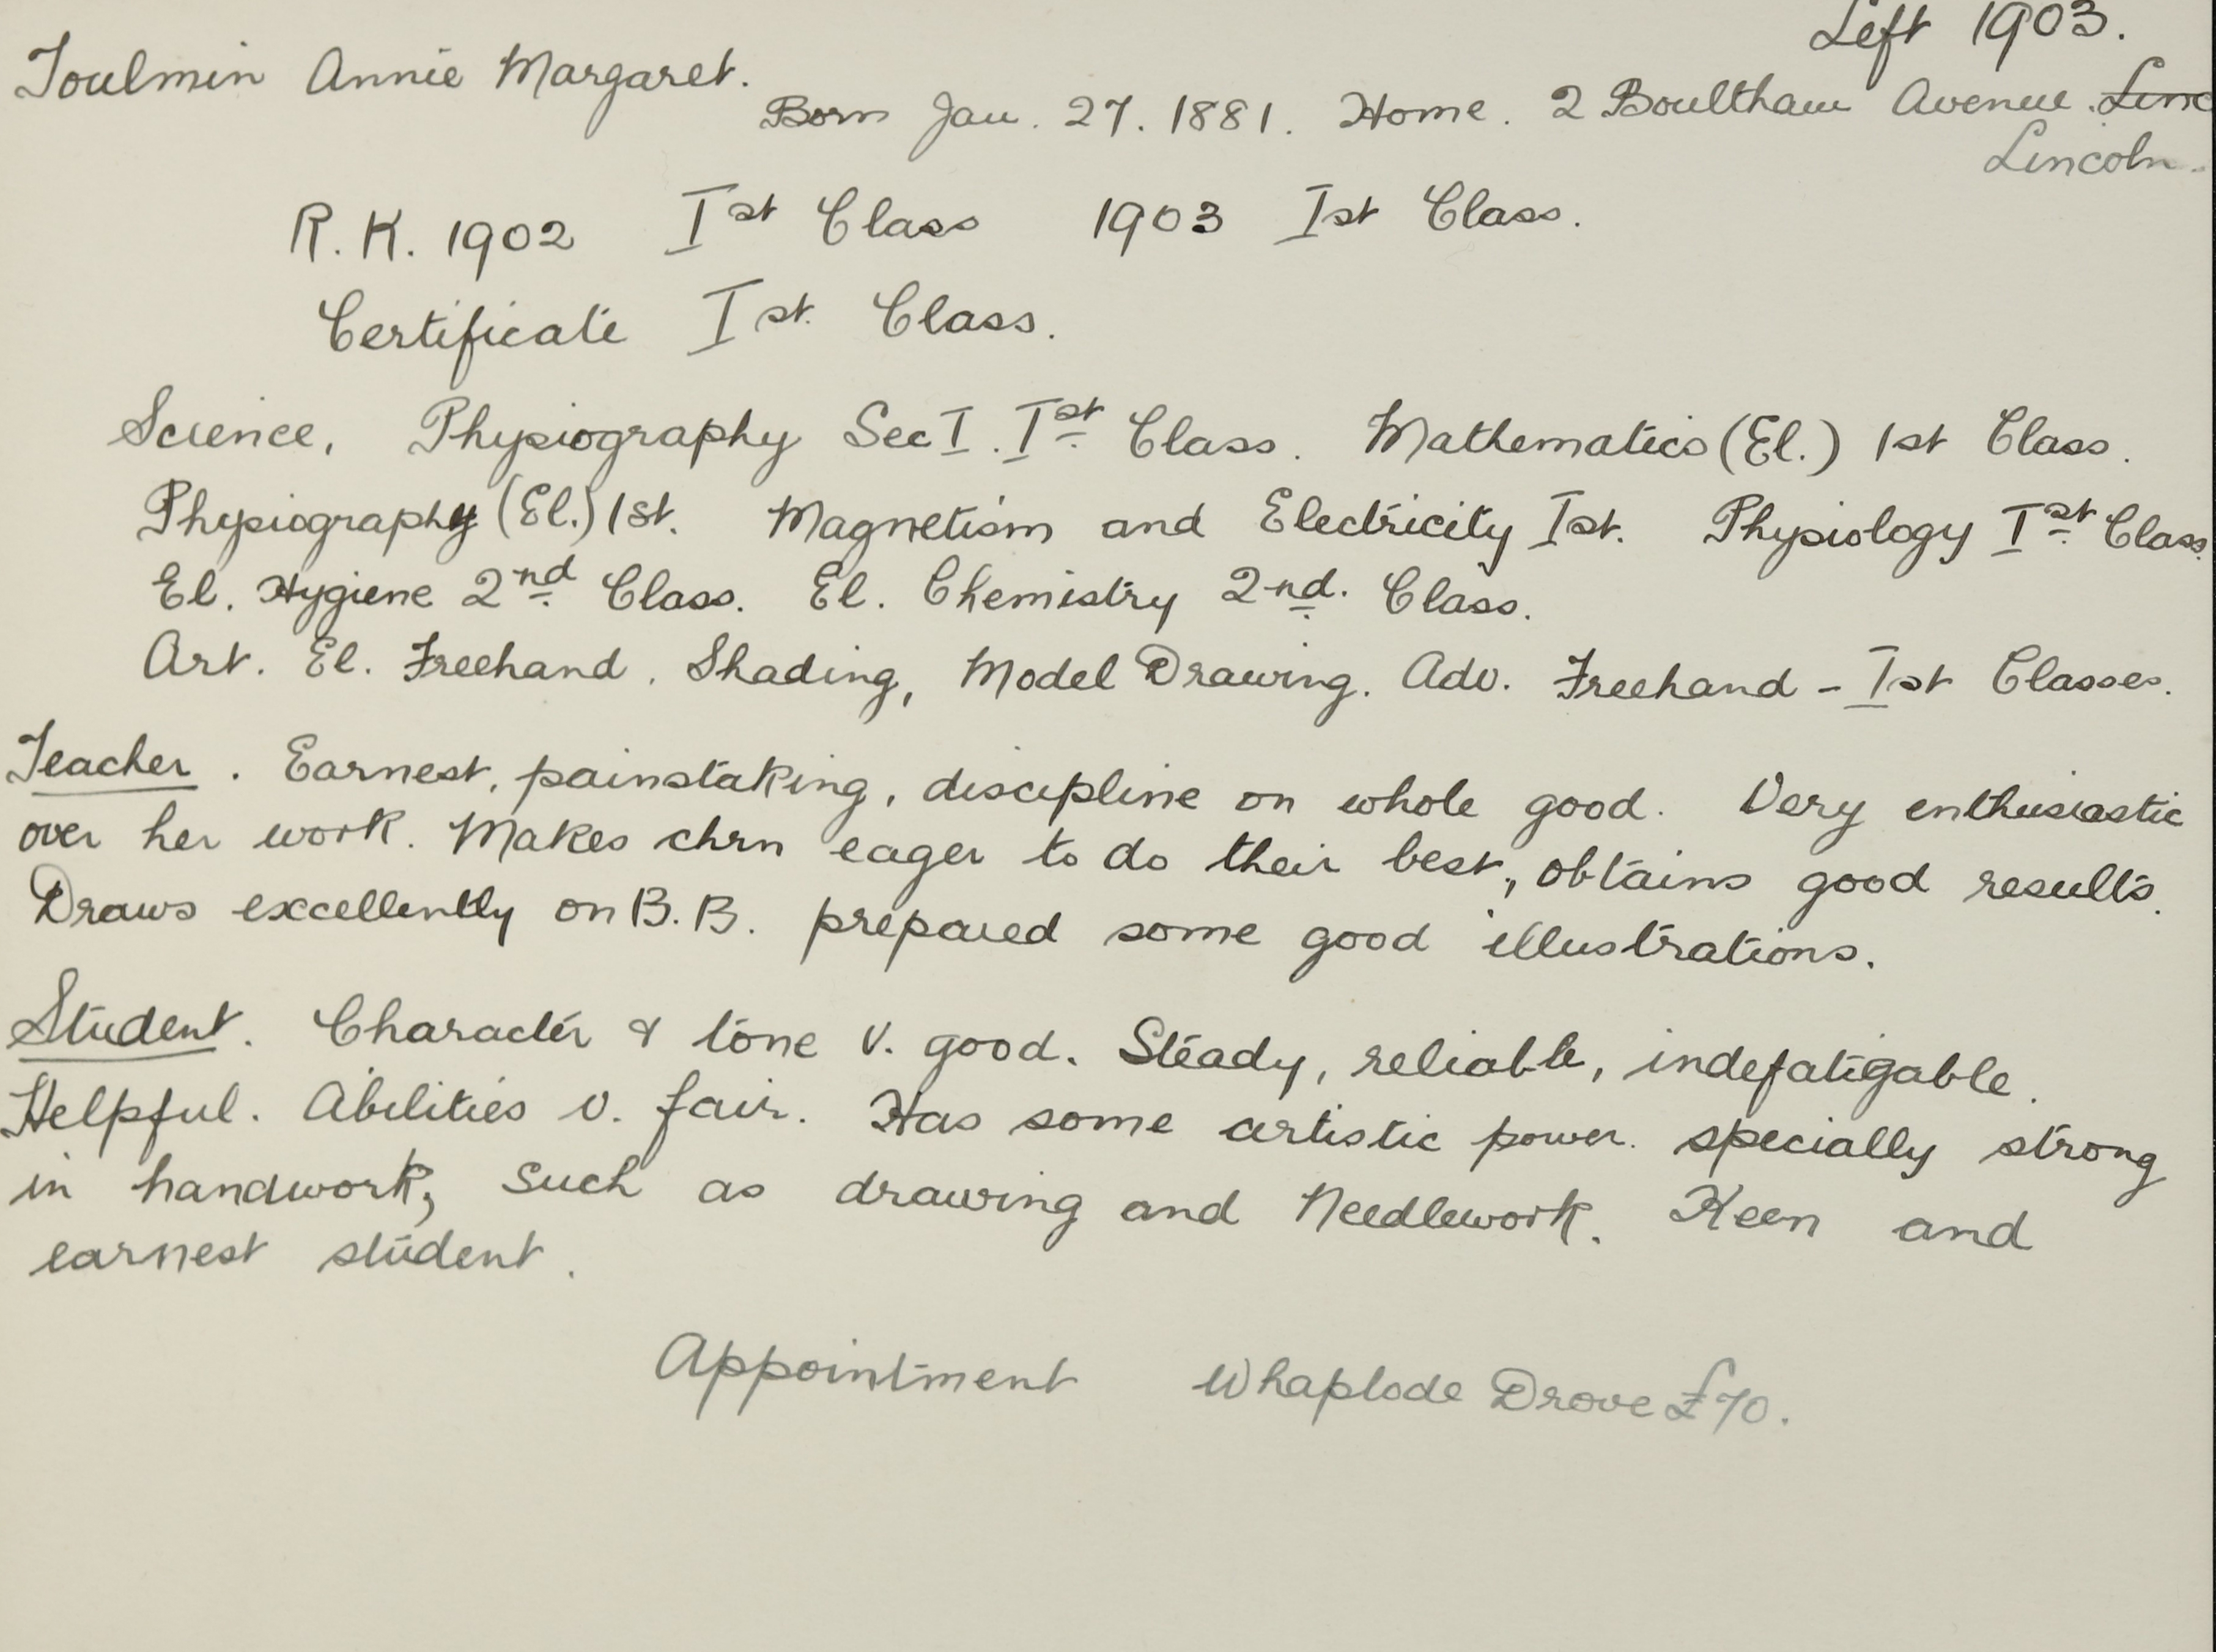 Left 1903.
Toulmin Annie Margaret.
Born Jan. 27. 1881. Home. 2 Boultham Avenue. Linc
Lincoln.
R. K. 1902 Ist Class 1903 Ist Class.
Certificate Ist. Class.
Science, Physiography Sec I. Ist Class. Mathematics (El.) 1st Class.
Physiography (El.) 1st. Magnetism and Electricity Ist. Physiology Ist Class.
El. Hygiene 2nd Class. El. Chemistry 2nd. Class.
Art. El. Freehand. Shading, Model Drawing. Adv. Freehand - Ist Classes.
Teacher. Earnest, painstaking, discipline on whole good. Very enthusiastic
over her work. Makes chrn eager to do their best, obtains good results.
Draws excellently on B.B. prepared some good illustrations.
Student. Character & tone v. good. Steady, reliable, indefatigable.
Helpful. Abilities v. fair. Has some artistic power. specially strong
in handwork, such as drawing and Needlework. Keen and
earnest student.
Appointment Whaplode Drove £70.